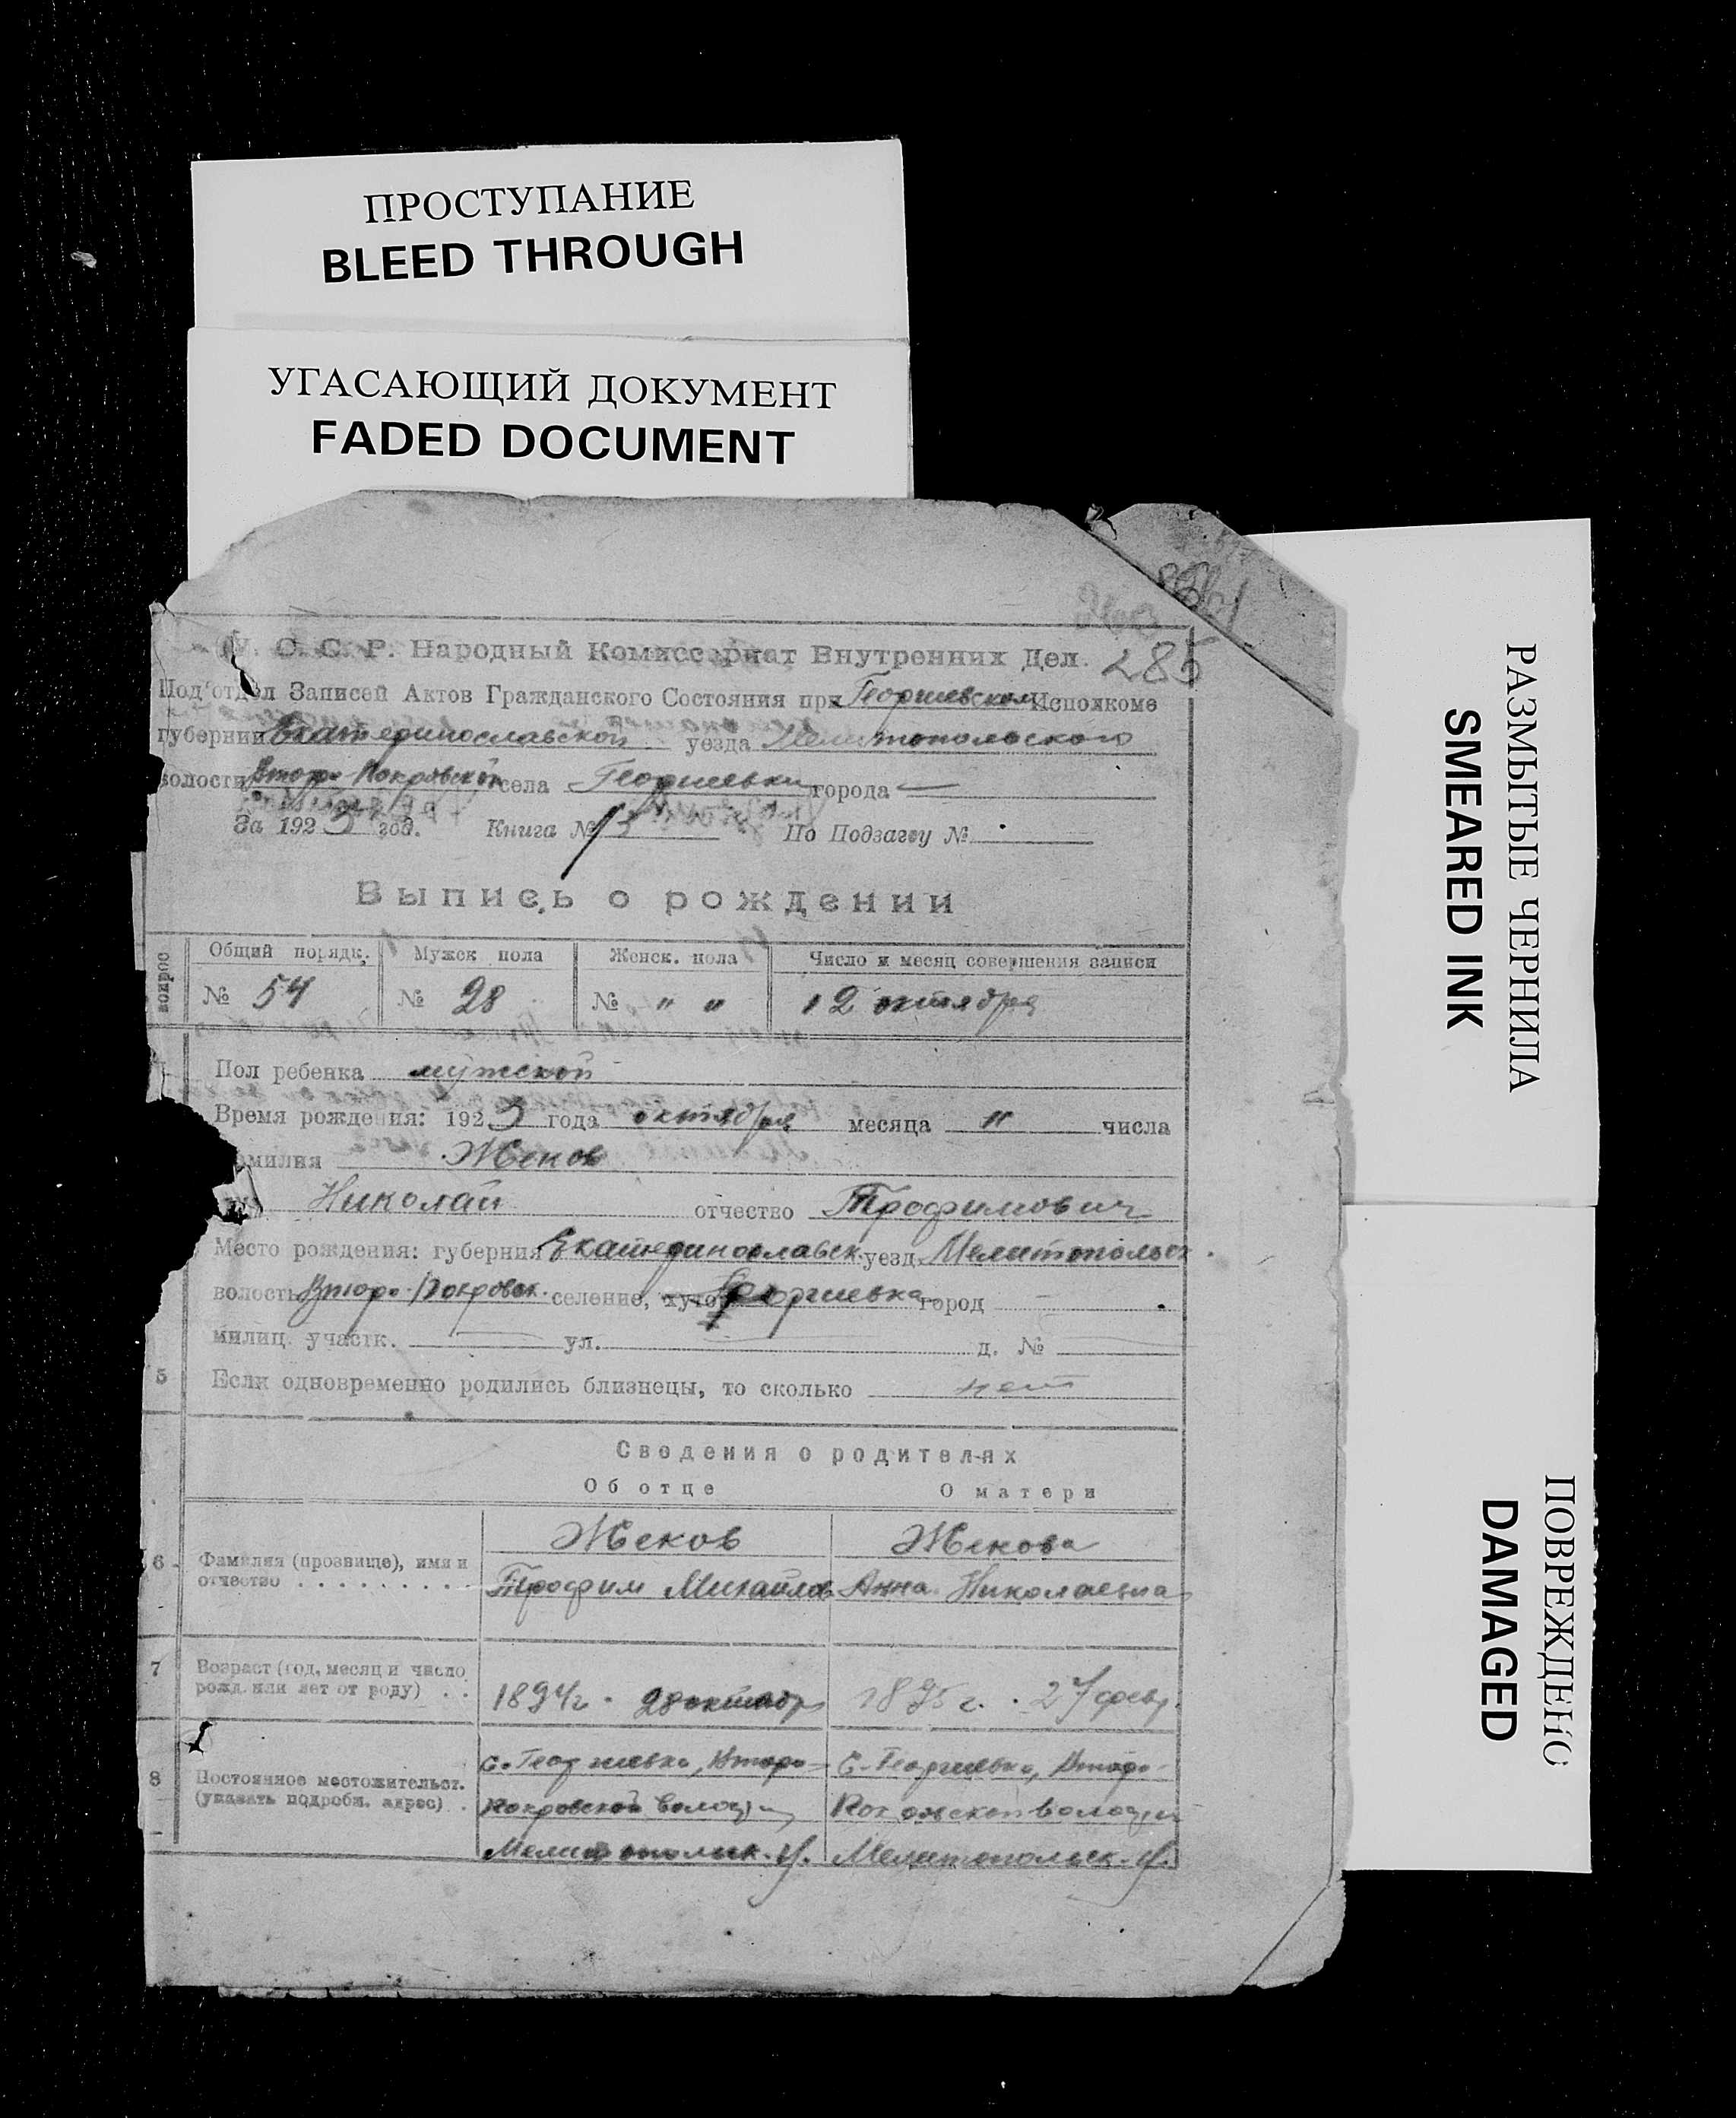 ПРОСТУПАНИЕ
BLEED THROUGH
УГАСАЮЩИЙ ДОКУМЕНТ
FADED DOCUMENT
РАЗМЫТЫЕ ЧЕРНИЛА
SMEARED INK
ПОВРЕЖДЕНО
DAMAGED
285
У. С. С. Р. Народный Комиссариат Внутренних Дел.
Под'отдел Записей Актов Гражданского Состояния при Георгиевском Исполкоме
губернии Екатеринославской уезда Мелитопольского
волости Второ-Покровской села Георгиевки города —
За 1923 год. Книга № По Подзагсу №
Выпись о рождении
вопрос Общий порядк. Мужск пола Женск. пола Число и месяц совершения записи
№ 54 № 28 № " " 12 октября
Пол ребенка мужской
Время рождения: 1923 года октября месяца 11 числа
амилия Жеков
Николай отчество Трофимович
Место рождения: губерния Екатеринославск. уезд. Мелитопольск.
волость Второ-Покровск. селение, хутор Георгиевка город —
милиц. участк. — ул. — д. № —
5 Если одновременно родились близнецы, то сколько нет
Сведения о родителях
Об отце О матери
6 Фамилия (прозвище), имя и отчество Жеков Жекова
Трофим Михайлов Анна Николаевна
7 Возраст (год, месяц и число рожд. или лет от роду) 1894г. 28 октябр 1895 г. 27 февр.
8 Постоянное местожительст. (указать подробн. адрес) с. Георгиевка, Второ- С. Георгиевка, Второ-
Покровской волости Покровской волости
Мелитопольск. у. Мелитопольск. у.